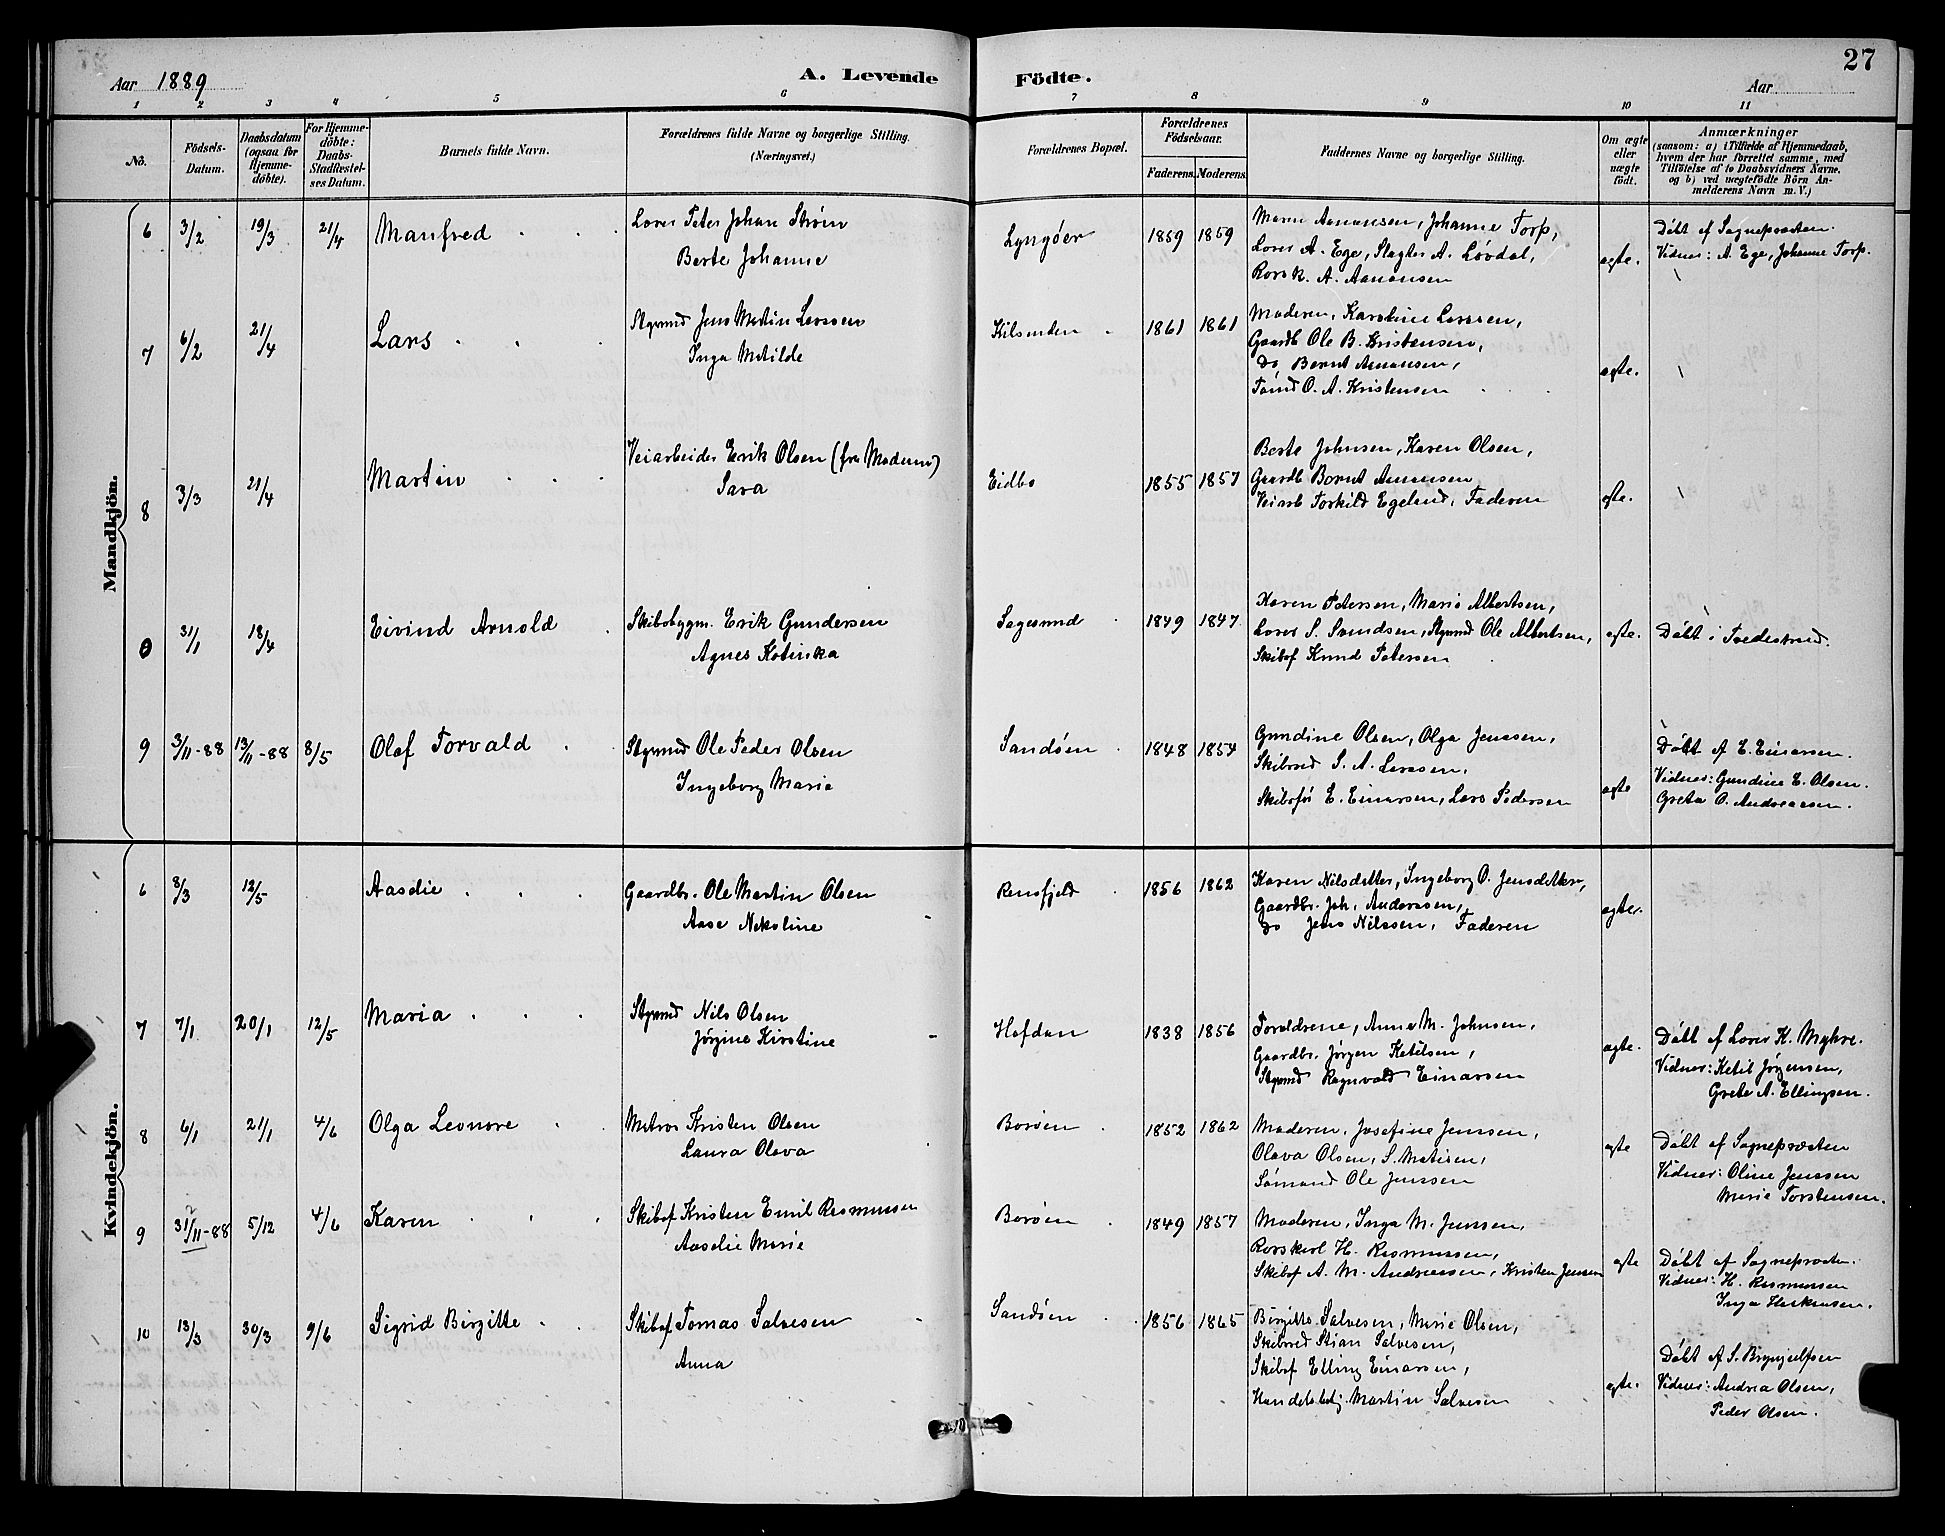 27
Aar 1889
A. Levende Födte.
Aar
1 2 3 4 5 6 7 8 9 10 11
No.
Födsels-Datum.
Daabsdatum (ogsaa for Hjemme-döbte).
For Hjemme-döbte: Daabs-Stadfæstel-ses Datum.
Barnets fulde Navn.
Forældrenes fulde Navne og borgerlige Stilling.
(Næringsvei.)
Forældrenes Bopæl.
Forældrenes Födselsaar.
Faderens. Moderens.
Faddernes Navne og borgerlige Stilling.
Om ægte eller uægte födt.
Anmærkninger
(saasom: a) i Tilfælde af Hjemmedaab,
hvem der har forrettet samme, med
Tilföielse af to Daabsvidners Navne.
og b) ved uægtefödte Börn An-
melderens Navn m. V.)
Mandkjön.
6 3/2 19/3 21/4 Manfred
Lover Peter Johan Strøm
Berte Johanne
Lyngøer 1859 1859
Maren Aanonsen, Johanne Torp,
Lover A. Ege, Slagter A. Løvdal,
Rorsk. A. Aanonsen
ægte.
Døbt af Sognepræsten.
Vidner: A. Ege, Johanne Torp.
7 6/2 21/4 Lars
Styrmd Jens Martin Larssen
Inga Matilde
Kilsunden 1861 1861
Moderen, Karoline Larssen,
Gaardb Ole B. Kristensen,
Do Bernt Aanonsen,
Tømd O. A. Kristensen
ægte.
8 3/3 21/4 Martin
Veiarbeider Erik Olsen (fra Modum)
Sara
Eidbo 1855 1857
Berte Johnsen, Karen Olsen,
Gaardb Bernt Aanonsen
Veiarb Torkild Egeland, Faderen
ægte.
0 31/1 18/4 Eivind Arnold
Skibsbygm. Erik Gundersen
Agnes Katinka
Sagesund 1849 1847
Karen Petersen, Marie Albertsen,
Lover S. Sundsen, Styrmd Ole Albertsen,
Skibsf Knud Petersen
ægte.
Døbt i Tvedestrand.
9 3/11-88 13/11-88 8/5 Olaf Torvald
Styrmd Ole Peder Olsen
Ingeborg Marie
Sandøen 1848 1854
Gundine Olsen, Olga Jenssen,
Skibsred S. A. Larssen,
Skibsfør E. Einarsen, Lars Pedersen
ægte
Døbt af E. Einarsen.
Vidner: Gundine E. Olsen.
Grete O. Andreassen.
Kvindekjön.
6 8/3 12/5 Aasdie
Gaardbr. Ole Martin Olsen
Aase Nikoline
Rensfjeld 1856 1862
Karen Nilsdatter, Ingeborg O. Jensdatter,
Gaardbr. Joh. Anderssen,
Do Jens Nilssen, Faderen
ægte.
7 7/1 20/1 12/5 Maria
Styrmd Nils Olsen
Jørgine Kirstine
Hofdan 1838 1856
Forældrene, Anne M. Johnsen,
Gaardbr. Jørgen Ketilsen,
Styrmd Ragnvald Einarsen
ægte.
Døbt af Lover K. Myhre.
Vidner: Ketil Jørgensen,
Grete A. Ellingsen.
8 6/1 21/1 4/6 Olga Leonore
Matros Kristen Olsen
Laura Olava
Borøen 1852 1862
Moderen, Josefine Jenssen,
Olava Olsen, S. Matisen,
Sømand Ole Jenssen
ægte
Døbt af Sognepræsten
Vidner: Oline Jenssen
Marie Torstensen.
9 31/11-88 5/12 4/6 Karen
Skibsf Kristen Emil Rasmussen
Aaselie Marie
Borøen 1849 1857
Moderen, Inga M. Jenssen,
Rorskarl H. Rasmussen,
Skibsf A. M. Andreassen, Kristen Jensen
ægte
Døbt af Sognepræsten.
Vidner: H. Rasmussen
Inga
10 13/3 30/3 9/6 Sigrid Birgitte
Skibsf Tomas Salvesen
Anna
Sandøen 1856 1865
Birgitte Salvesen, Marie Olsen,
Skibsred Stian Salvesen,
Skibsf Elling Einarsen,
Handelsbetj. Martin Salvesen
ægte.
Døbt af S. Brynjulfsen
Vidner: Andrea Olsen,
Peder Olsen.